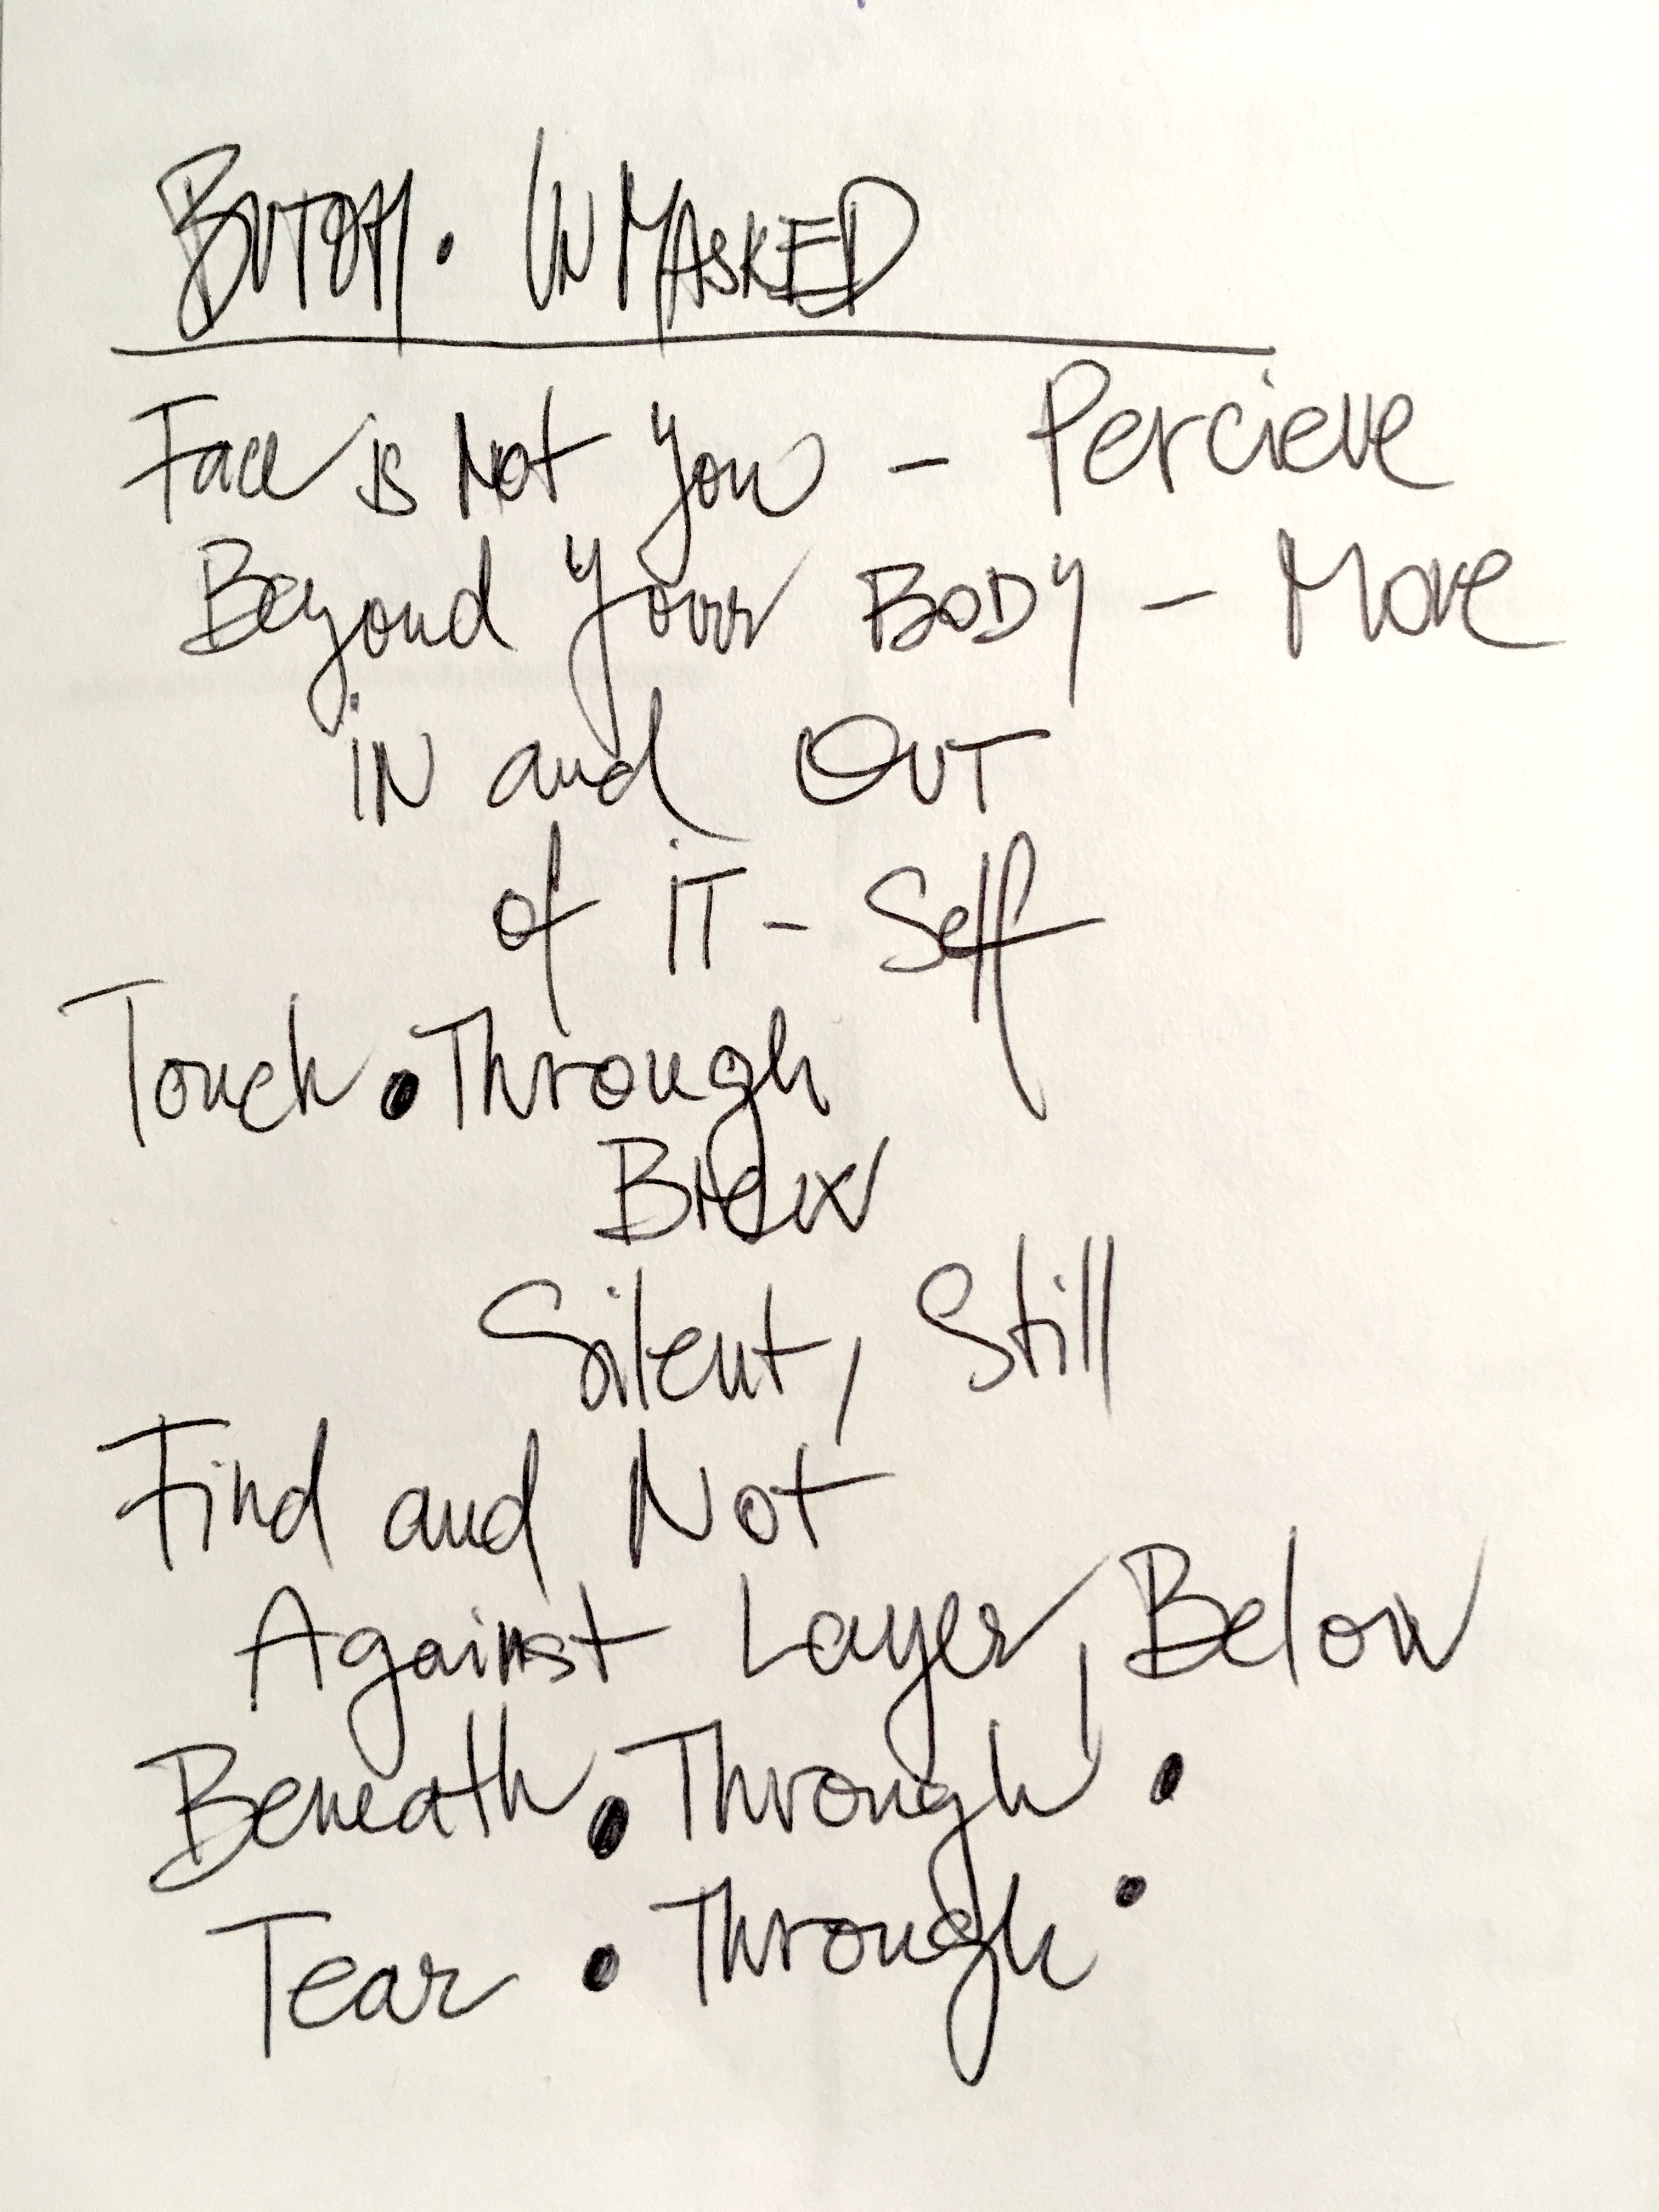 BUTOH • UNMASKED
Face is Not you – Percieve
Beyond Your BODY – Move
iN and OUT
of iT – Self
Touch • Through
Silent, Still
Find and Not
Against Layer, Below
Beneath • Through •
Tear • Through •